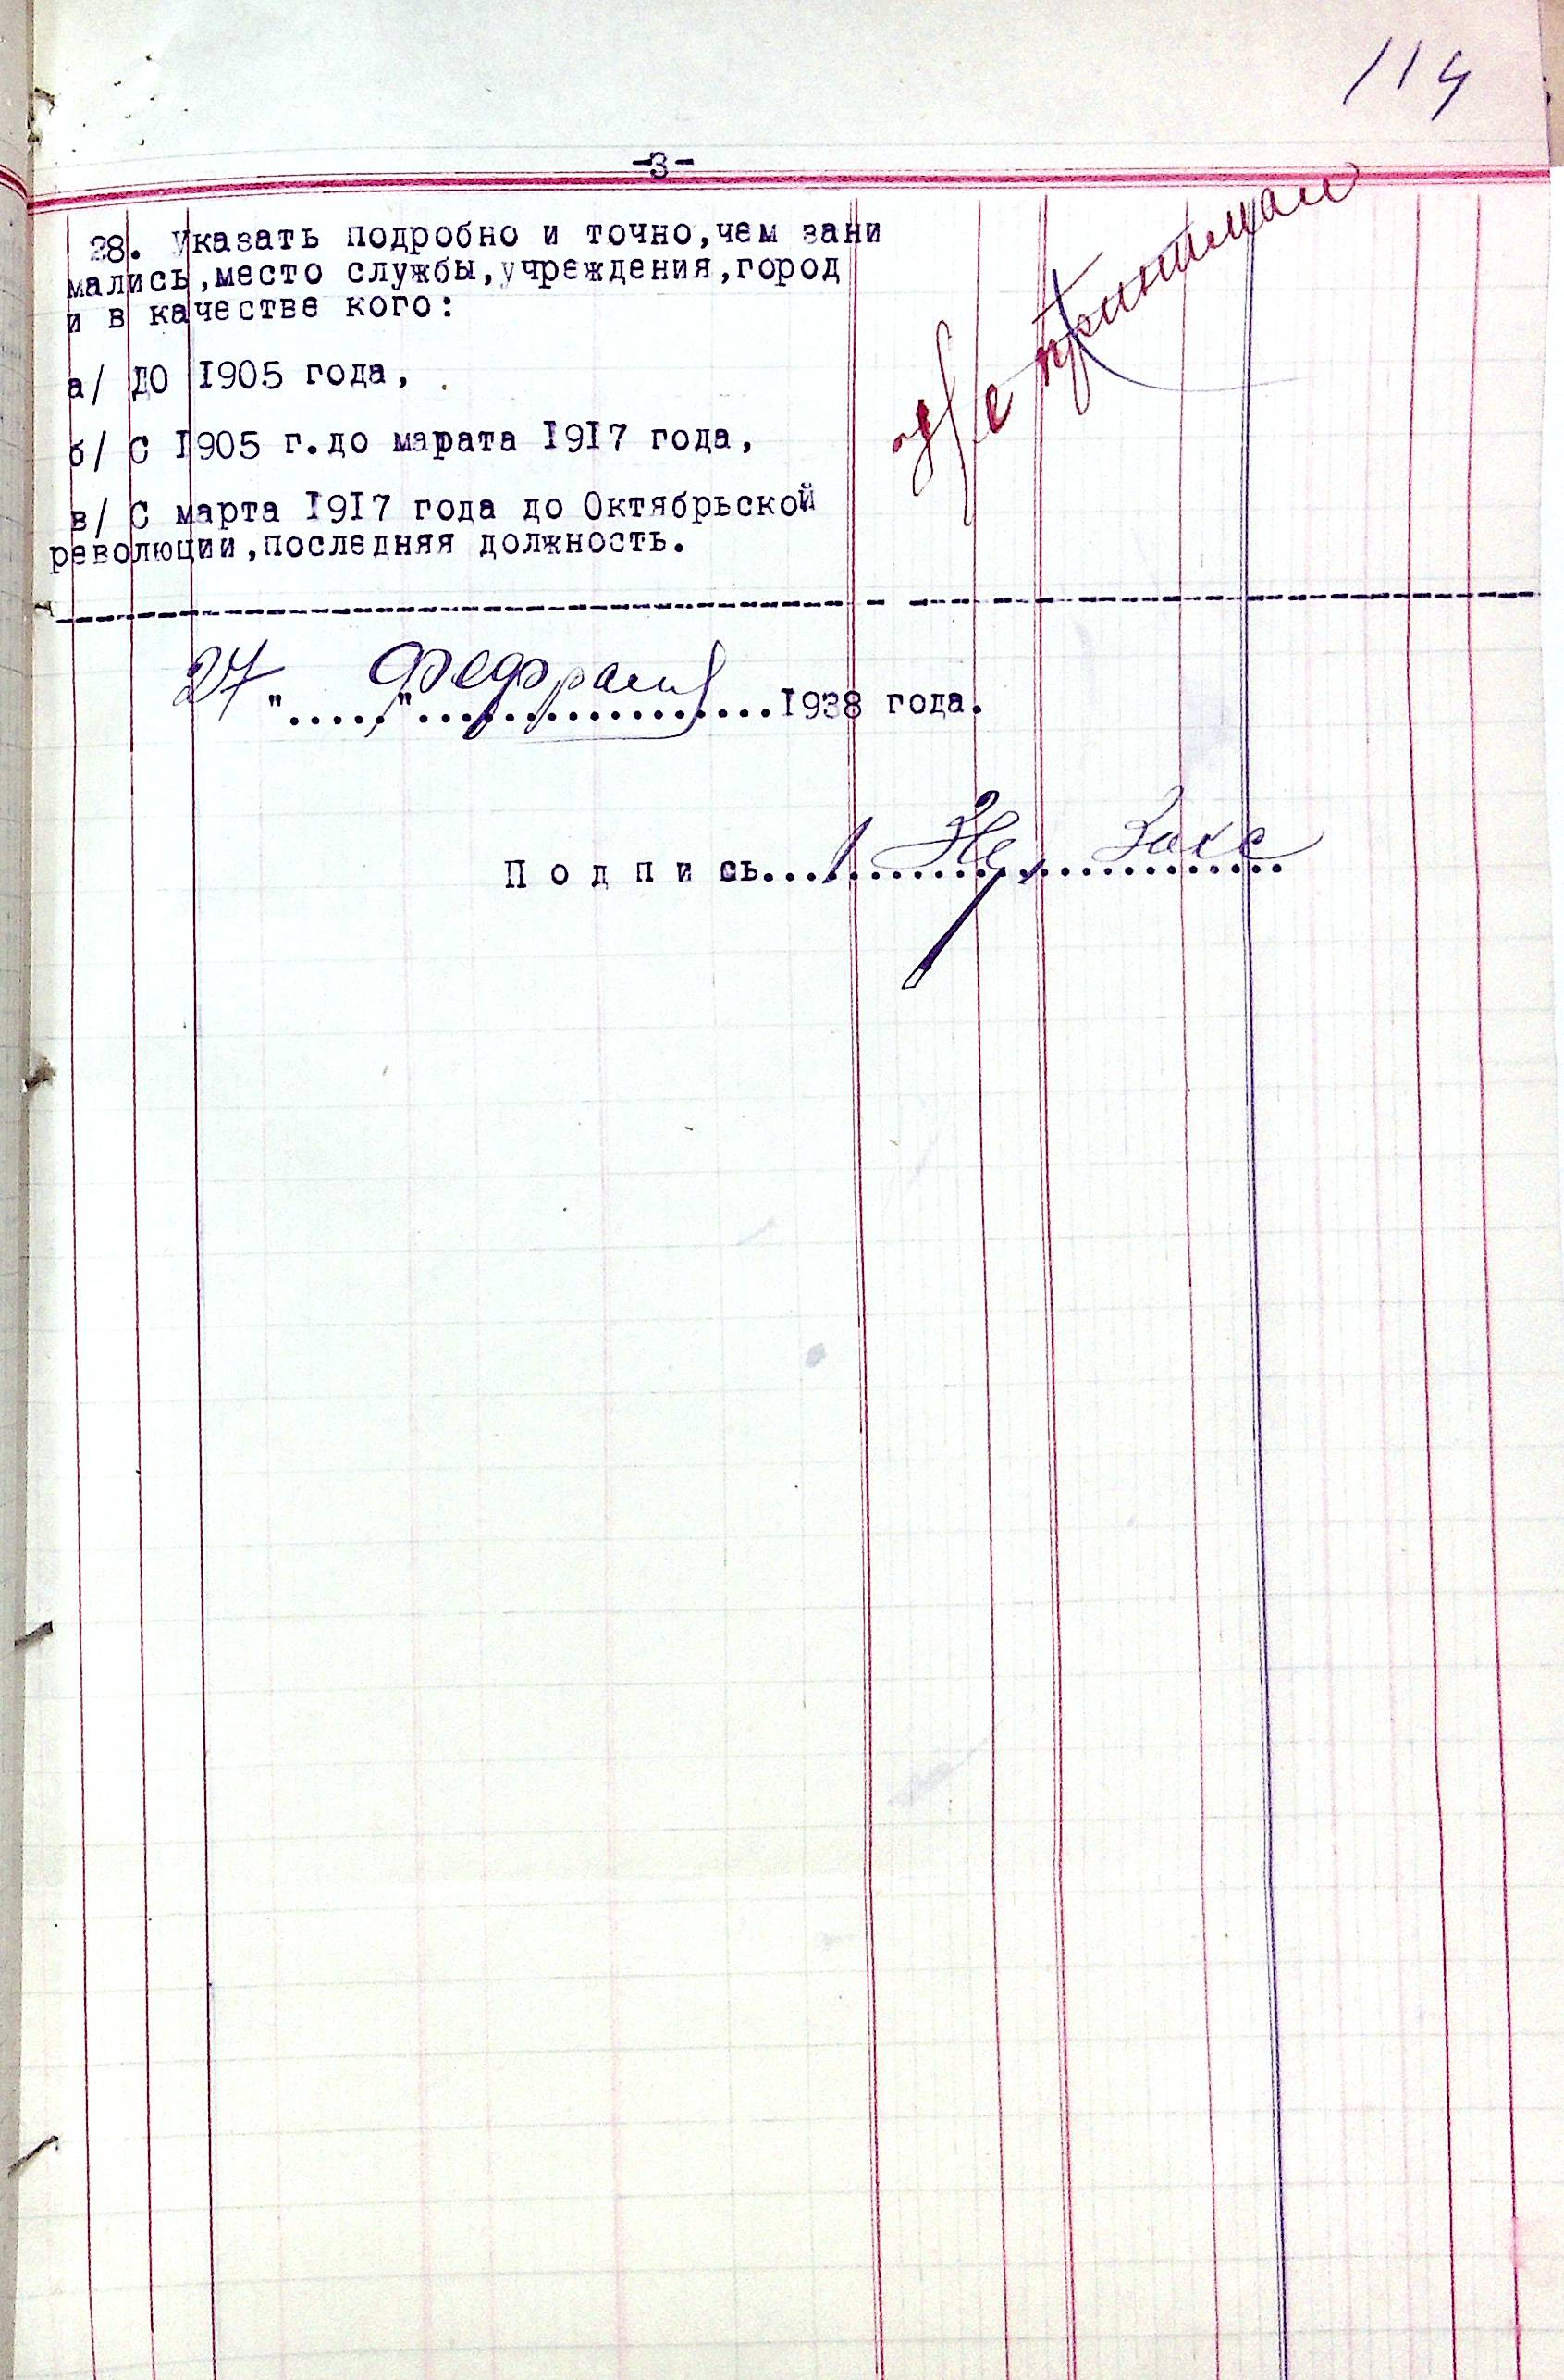 114
-3-
28. Указать подробно и точно,чем зани
мались,место службы,учреждения,город
и в качестве кого:
Не принимал
а/ ДО 1905 года,
б/ С 1905 г.до марата 1917 года,
в/ С марта 1917 года до Октябрьской
революции,последняя должность.
27 "....." Февраля 1938 года.
П о д п и сь... Закс